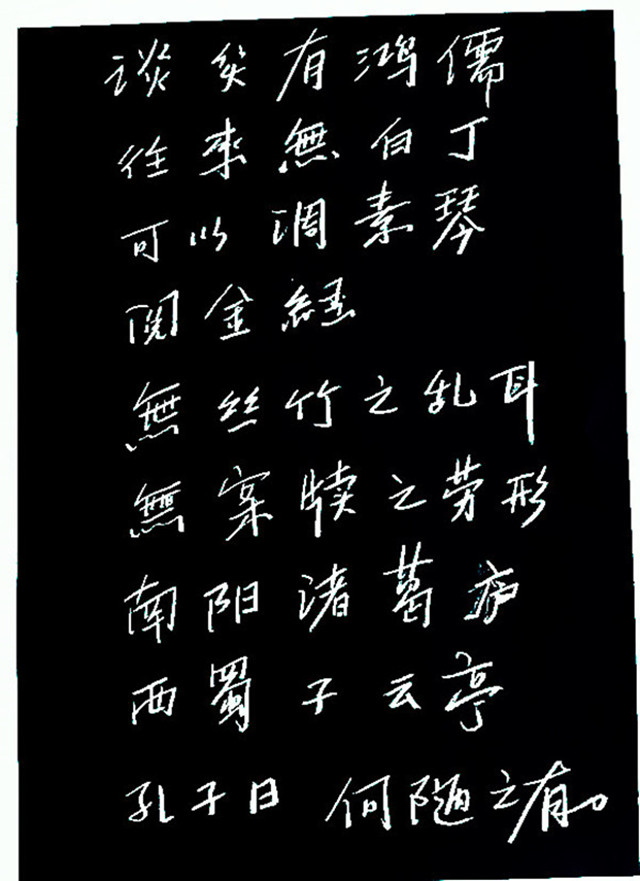 谈笑有鸿儒
往来無白丁
可以调素琴
阅金経
無丝竹之乱耳
無案牍之劳形
南阳诸葛庐
西蜀子云亭
孔子曰 何陋之有。